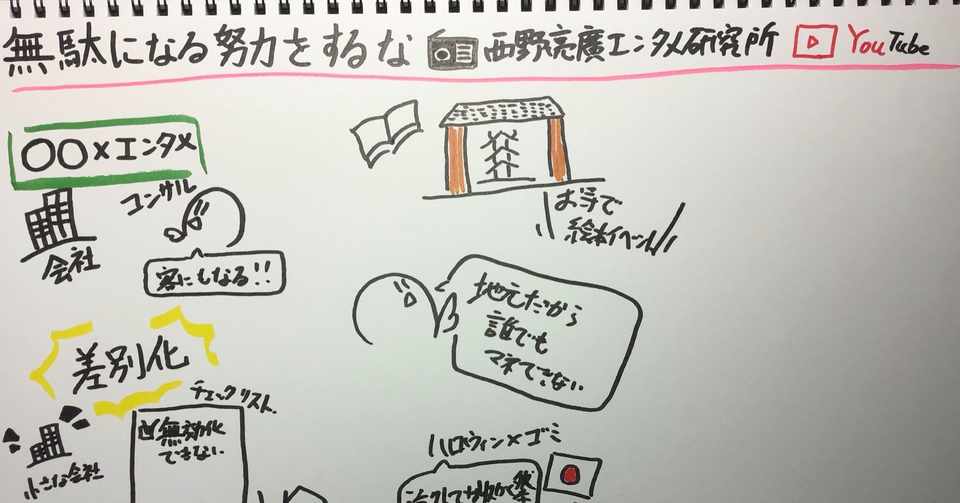 無駄になる努力をするな 西野亮廣エンタメ研究所 YouTube
〇〇×エンタメ
コンサル
会社
客にもなる!!
差別化
チェックリスト
小さな会社
無効化
できない
お寺で
絵本イベント
地元だから
誰でも
マネできない
ハロウィン×ゴミ